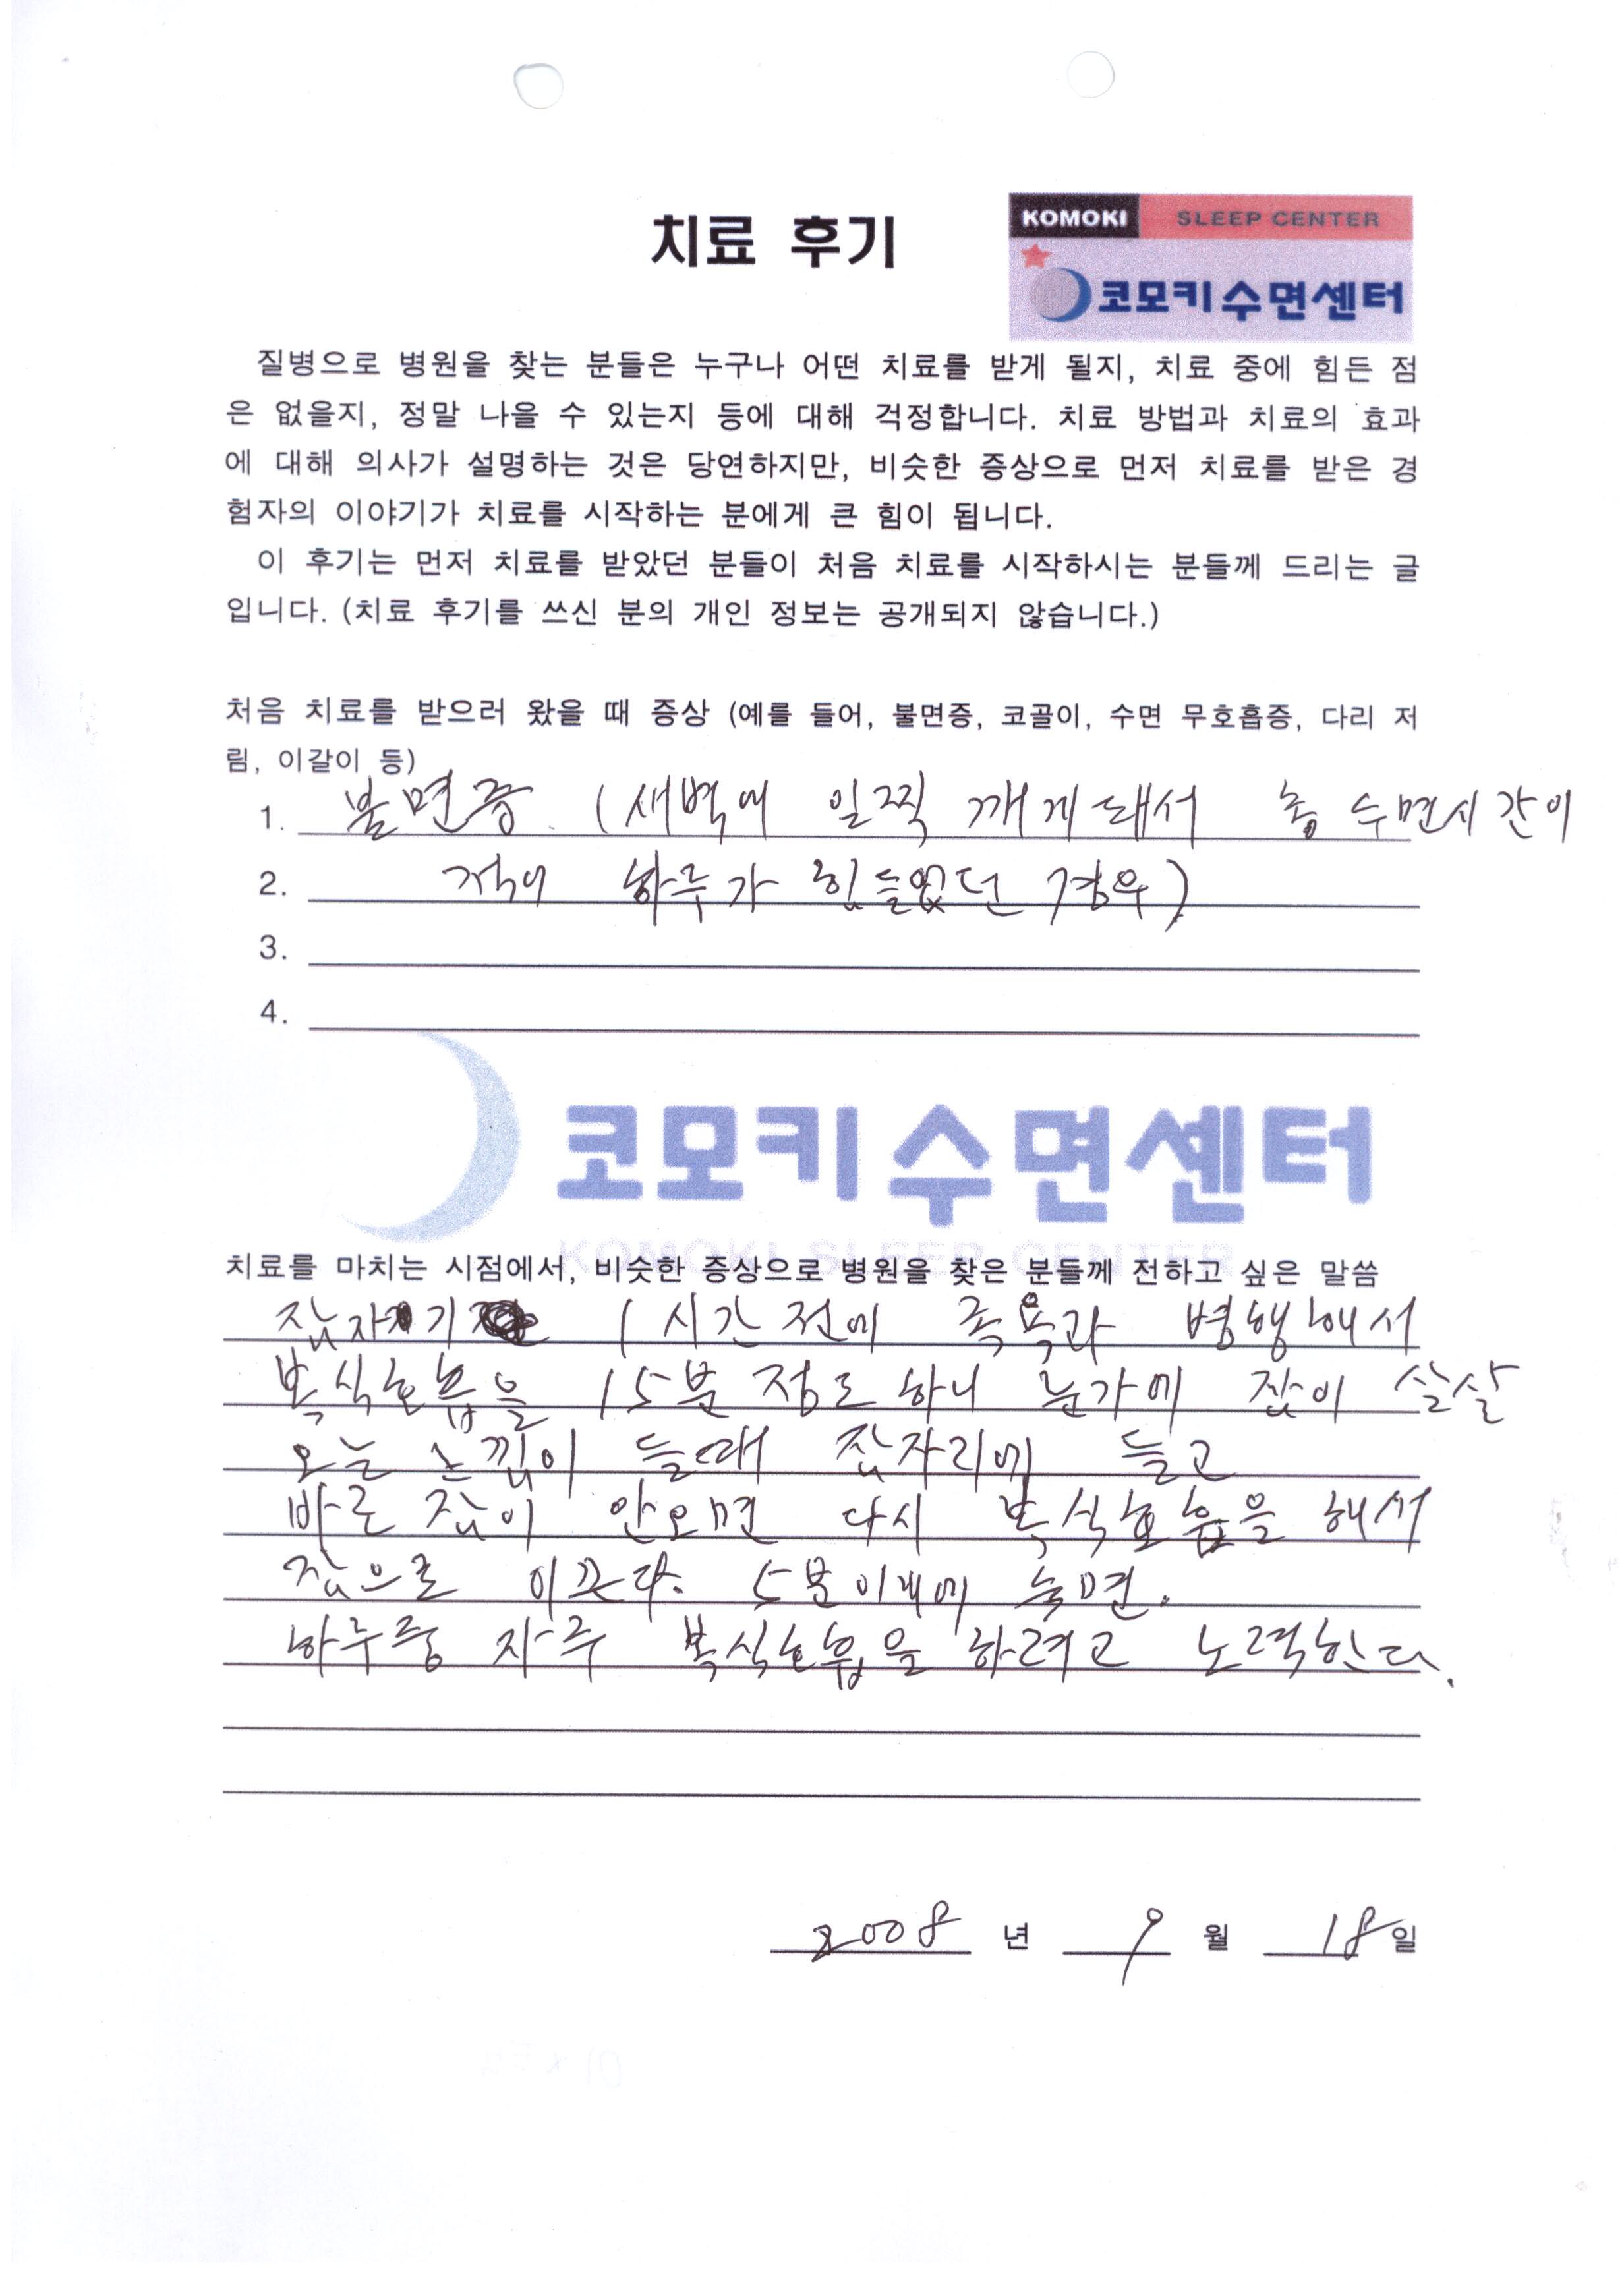 치료 후기
KOMOKI SLEEP CENTER
코모키수면센터
질병으로 병원을 찾는 분들은 누구나 어떤 치료를 받게 될지, 치료 중에 힘든 점
은 없을지, 정말 나을 수 있는지 등에 대해 걱정합니다. 치료 방법과 치료의 효과
에 대해 의사가 설명하는 것은 당연하지만, 비슷한 증상으로 먼저 치료를 받은 경
험자의 이야기가 치료를 시작하는 분에게 큰 힘이 됩니다.
이 후기는 먼저 치료를 받았던 분들이 처음 치료를 시작하시는 분들께 드리는 글
입니다. (치료 후기를 쓰신 분의 개인 정보는 공개되지 않습니다.)
처음 치료를 받으러 왔을 때 증상 (예를 들어, 불면증, 코골이, 수면 무호흡증, 다리 저
림, 이갈이 등)
1. 불면증. (새벽에 일찍 깨게돼서 총 수면시간이
2. 적어 하루가 힘들었던 경우)
3.
4.
코모키수면센터
KOMOKI SLEEP CENTER
치료를 마치는 시점에서, 비슷한 증상으로 병원을 찾은 분들께 전하고 싶은 말씀
잠자기 1시간전에 족욕과 병행해서
복식호흡을 15분 정도 하니 눈가에 잠이 살살
오는 느낌이 들때 잠자리에 들고
바로 잠이 안오면 다시 복식호흡을 해서
잠으로 이끈다. 5분이내에 숙면.
하루중 자주 복식호흡을 하려고 노력한다.
2008 년 9 월 18 일